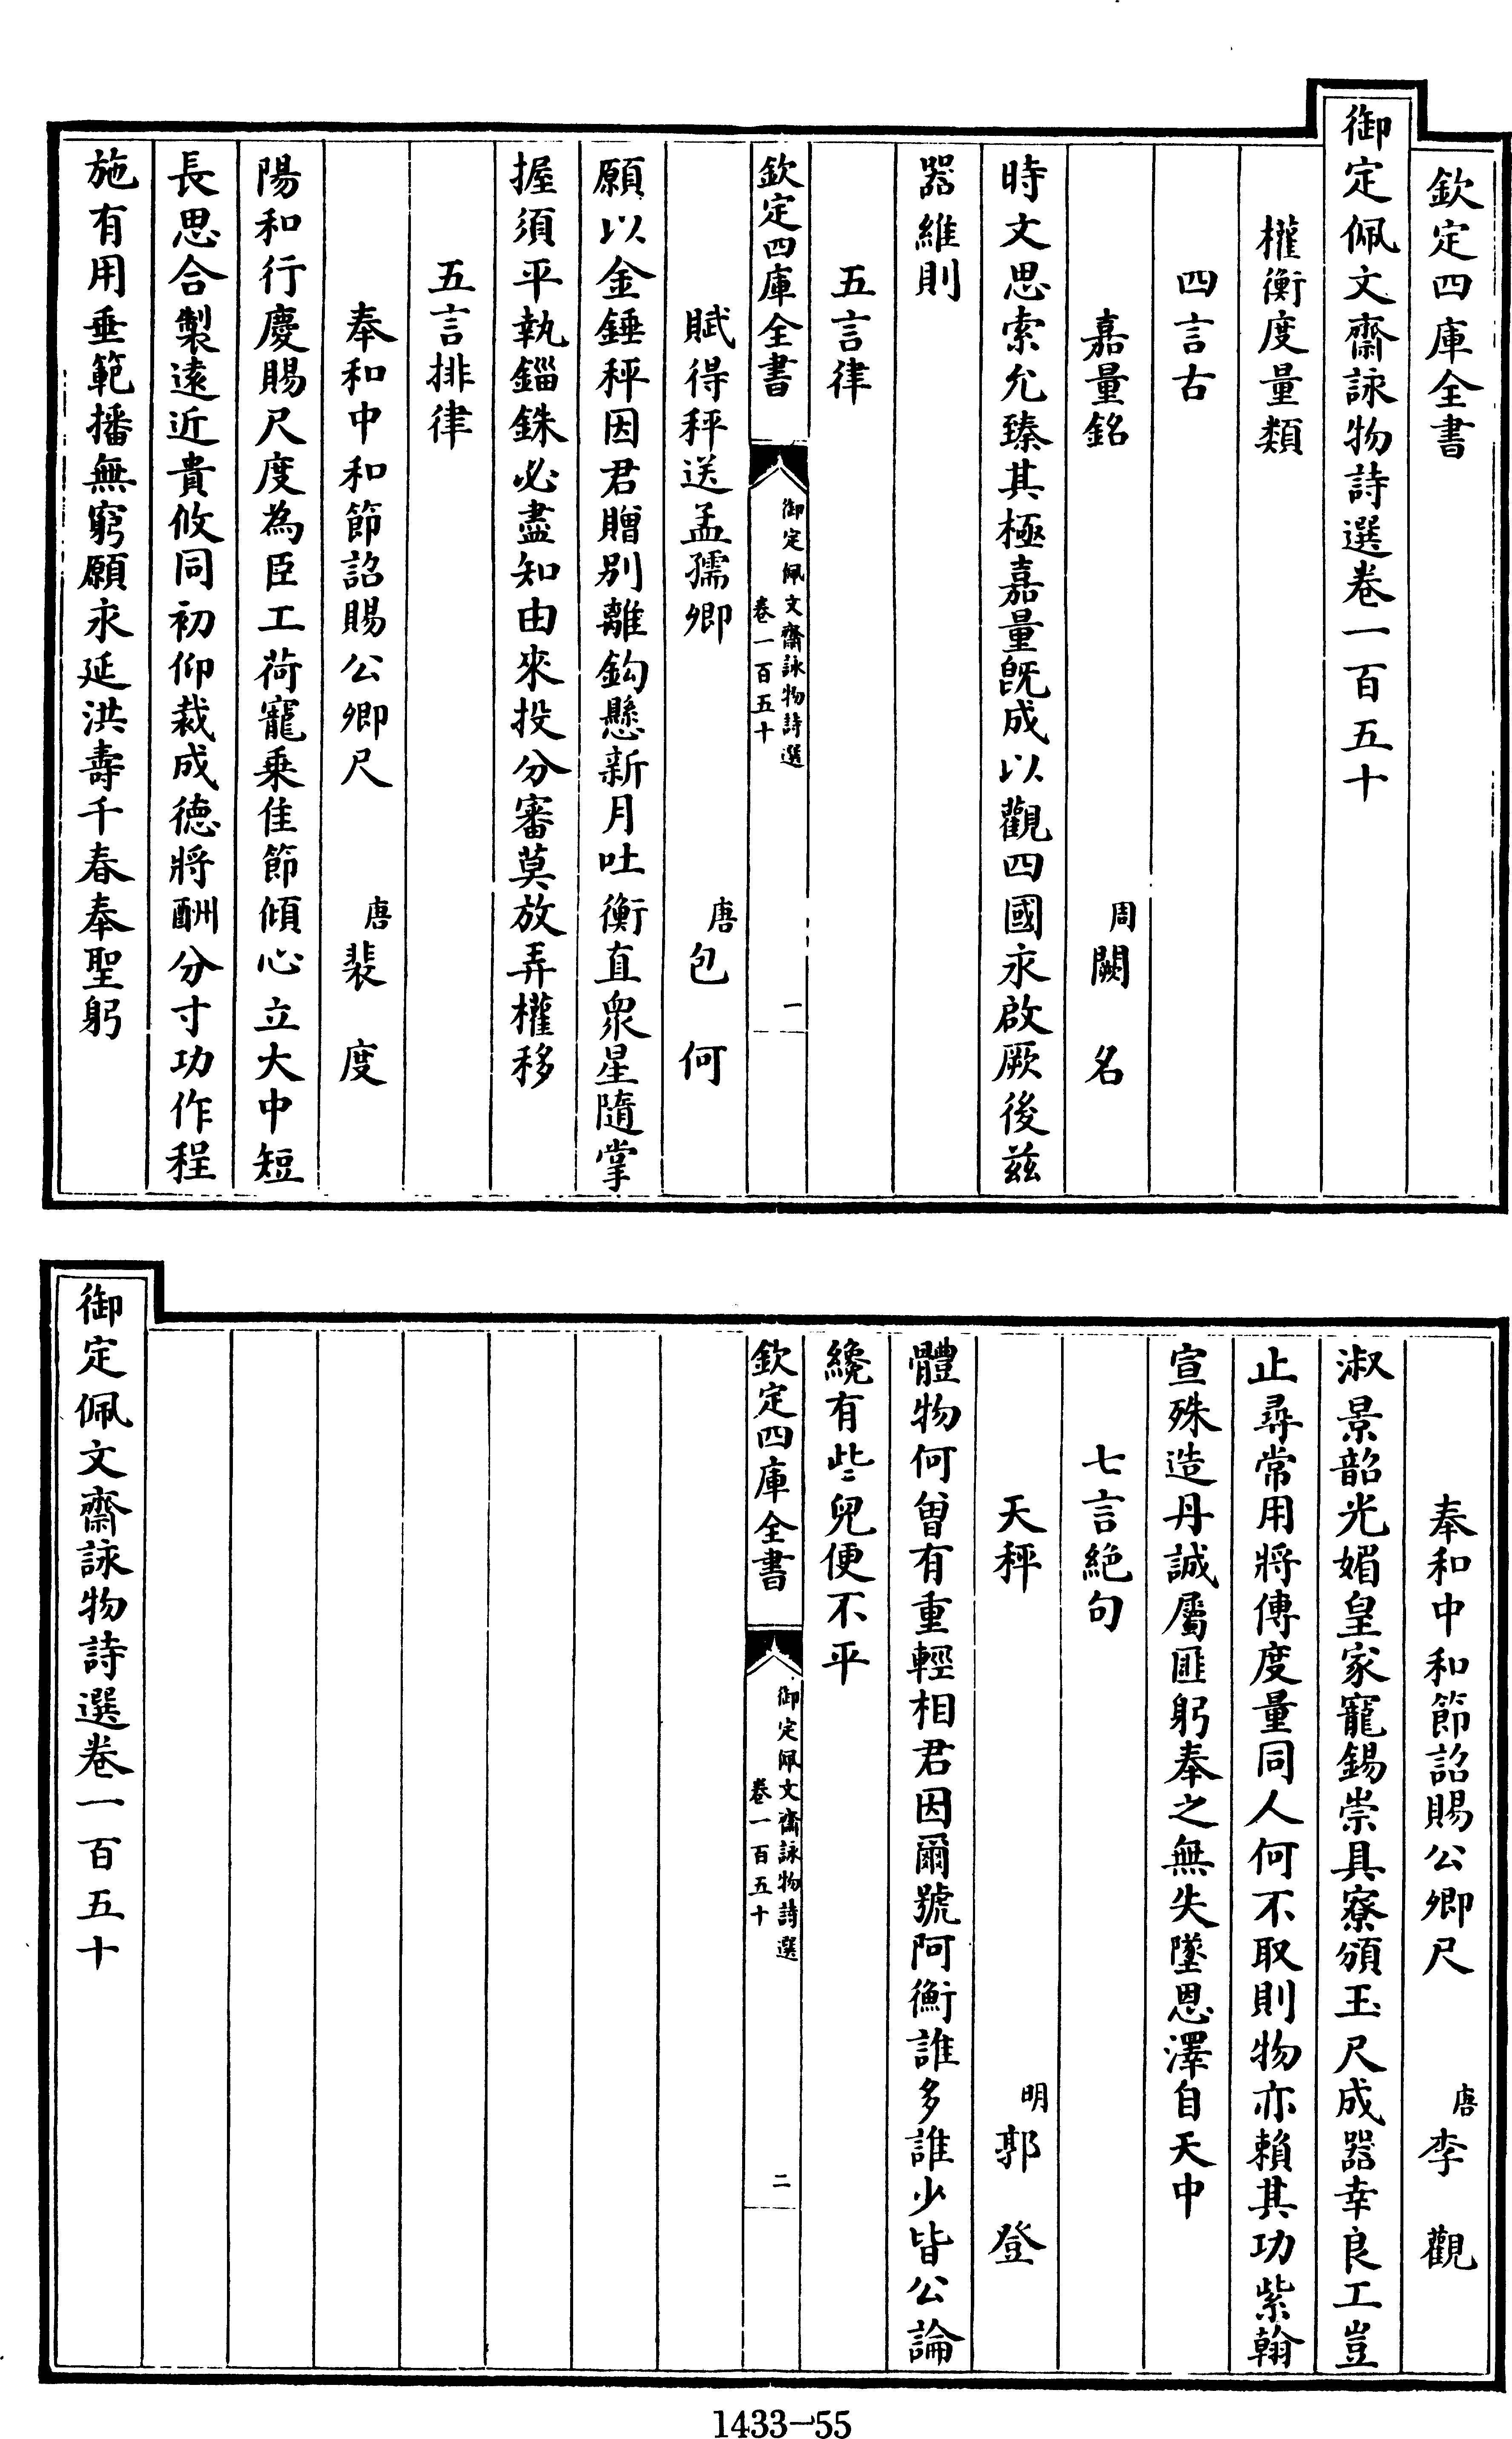 欽定四庫全書
御定佩文齋詠物詩選卷一百五十
權衡度量類
四言古
嘉量銘 周闕名
時文思索允臻其極嘉量既成以觀四國永啟厥後茲
器維則
五言律
欽定四庫全書
御定佩文齋詠物詩選
卷一百五十
一
賦得秤送孟孺卿 唐包何
願以金錘秤因君贈別離鈎懸新月吐衡直衆星隨掌
握須平執錙銖必盡知由來投分審莫放弄權移
五言排律
奉和中和節詔賜公卿尺 唐裴度
陽和行慶賜尺度為臣工荷寵乗佳節傾心立大中短
長思合製逺近貴攸同初仰裁成德將酬分寸功作程
施有用垂範播無窮願永延洪壽千春奉聖躬
奉和中和節詔賜公卿尺 唐李觀
淑景韶光媚皇家寵錫崇具寮頒玉尺成器幸良工豈
止尋常用將傳度量同人何不取則物亦賴其功紫翰
宣殊造丹誠屬匪躬奉之無失墜恩澤自天中
七言絶句
天秤 明郭登
體物何曾有重輕相君因爾號阿衡誰多誰少皆公論
纔有些兒便不平
欽定四庫全書
御定佩文齋詠物詩選
卷一百五十
二
御定佩文齋詠物詩選卷一百五十
1433-55